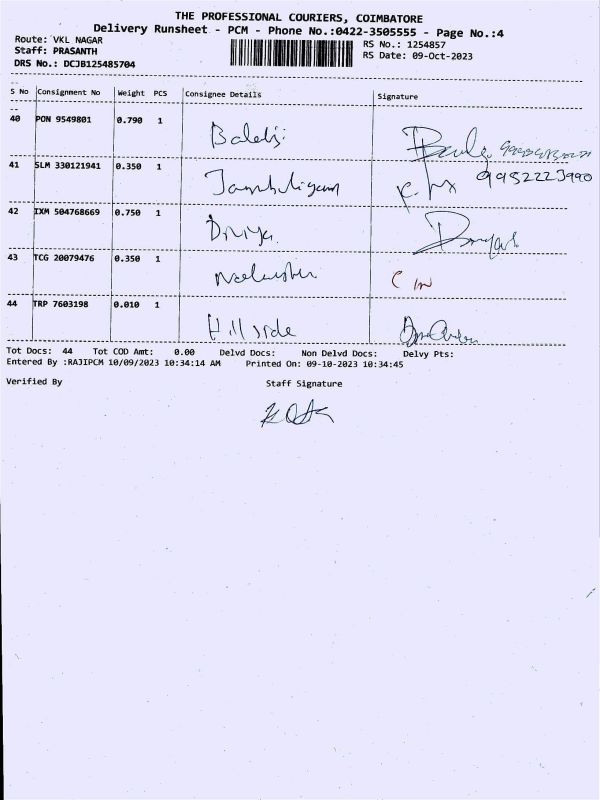 THE PROFESSIONAL COURIERS, COIMBATORE
Delivery Runsheet - PCM - Phone No.:0422-3505555 - Page No.:4
Route: VKL NAGAR
RS No.: 1254857
Staff: PRASANTH
RS Date: 09-Oct-2023
DRS No.: DCJB125485704
S No Consignment No Weight PCS Consignee Details Signature
40 PON 9549801 0.790 1
41 SLM 330121941 0.350 1 9952223990
42 IXM 504768669 0.750 1 Divya
43 TCG 20079476 0.350 1
44 TRP 7603198 0.010 1 Hill side
Tot Docs: 44 Tot COD Amt: 0.00 Delvd Docs: Non Delvd Docs: Delvy Pts:
Entered By :RAJIPCM 10/09/2023 10:34:14 AM Printed On: 09-10-2023 10:34:45
Verified By Staff Signature